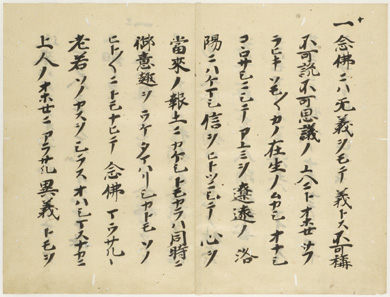 一 念佛ニハ无義ヲモテ義トス不可稱
不可説不可思議ノユヘニトオホセサフ
ラヒキソモ〱カノ在生ノムカシオナシ
コヽロサシニシテアユミヲ遼遠ノ洛
陽ニハケマシ信ヲヒトツニシテ心ヲ
當來ノ報土ニカケシトモカラハ同時ニ
御意趣ヲウケタマハリシカトモソノ
ヒト〱ニトモナヒテ念佛マウサルヽ
老若ソノカスヲシラスオハシマスナカニ
上人ノオホセニアラサル異義トモヲ